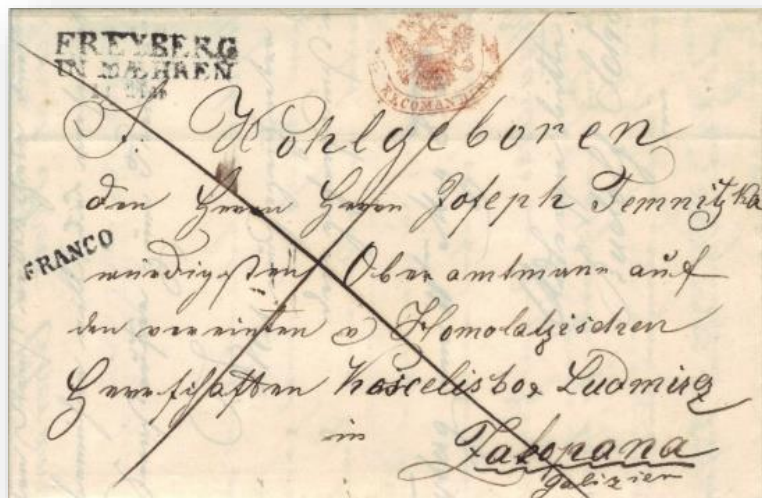 FREYBERG
IN MÆHREN
RECOMANDIRT
FRANCO
Sr. Wohlgeboren
den Herrn Herrn Joseph Temnitzka
würdigsten Oberamtmann auf
den vereinten v Homolatzischen
Herrschaften Koscelisko & Ludmirz
in
Zakopana
Galizien